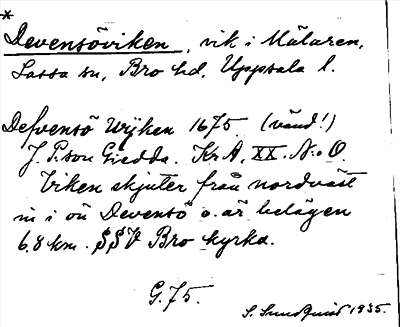 *
Devensöviken, vik i Mälaren,
Låssa sn, Bro hd, Uppsala l.
Defvensö Wijken 1675. (vänd!)
J. P:son Giedda. KrA, XX. N:o O.
Viken skjuter från nordväst
in i ön Devensö o. är belägen
6.8 km. SSV Bro kyrka.
G.75.
S. Sundquist 1935.